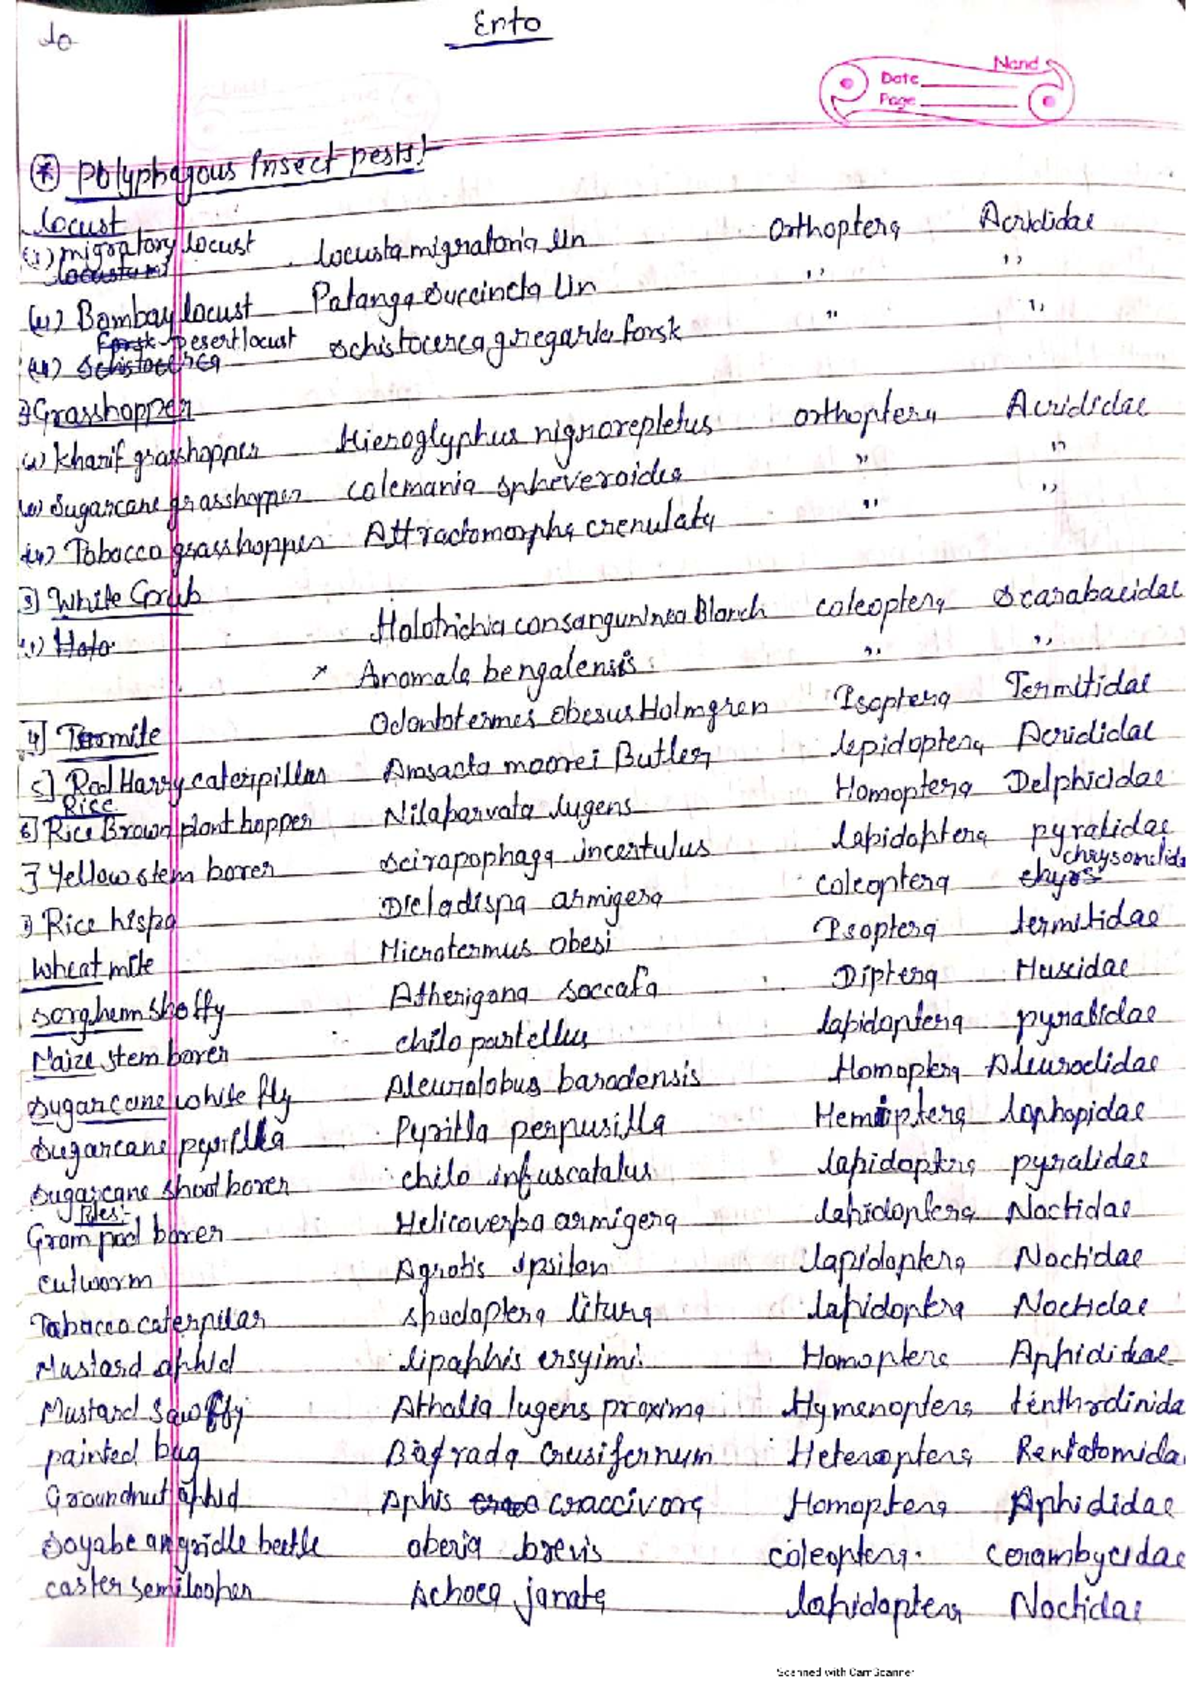 Ento
Nand
Date
Page
Polyphagous Insect pests!
Locust
(i) migratory locust Locusta migratoria lin Orthoptera Acrididae
(ii) Bombay locust Patanga succincta lin ,, ,,
(iii) Desert locust Schistocerca gregaria forsk ,, ,,
Grasshopper
(i) Kharif grasshopper Hieroglyphus nignorepletus orthoptera Acrididae
(ii) Sugarcane grasshopper colemania spheveroides ,, ,,
(iii) Tobacco grasshopper Attractomorpha crenulata ,, ,,
3] White Grub
(i) Holotrichia consanguninea Blanch coleoptera Scarabacidae
x Anomala bengalensis ,, ,,
4] Termite Odontotermes obesus Holmgren Isoptera Termitidae
5] Red Harry caterpillar Amsacta moorei Butler lepidoptera Acrididae
Rice
6] Rice Brown plant hopper Nilaparvata lugens Homoptera Delphicidae
7 Yellow stem borer scirapophaga incertulus lapidoptera pyralidae
Rice hispa Dicladispa armigera coleoptera chrysomelida
Wheat mite Microtermus obesi Isoptera termitidae
sorghem shoffy Atherigona soccata Diptera Muscidae
Maize stem borer chilo partellus lapidoptera pyralidae
Sugarcane white fly Aleurolobus barodensis Homoptera Aleurodidae
Sugarcane pyrilla Pyrilla perpusilla Hemiptera lophopidae
Sugarcane shoot borer chilo infuscatalus lapidoptera pyralidae
Gram pod borer Helicoverpa armigera lapidoptera Noctidae
cutworm Agrotis ipsilon lapidoptera Noctidae
Tobacco caterpilar spodoptera litura lapidoptera Noctidae
Mustard aphid lipaphis ersyimi Homoptera Aphididae
Mustard Sawfly Athalia lugens proxima Hymenoptera tenthrdinida
painted bug Bagrada Crusifernum Heteroptera Pentatomida
Groundnut aphid Aphis craccivora Homoptera Aphididae
Soyabean gridle beetle oberia brevis coleoptera. cerambycidae
caster semilooper Achoea janata lapidoptera Noctidae
Scanned with CamScanner